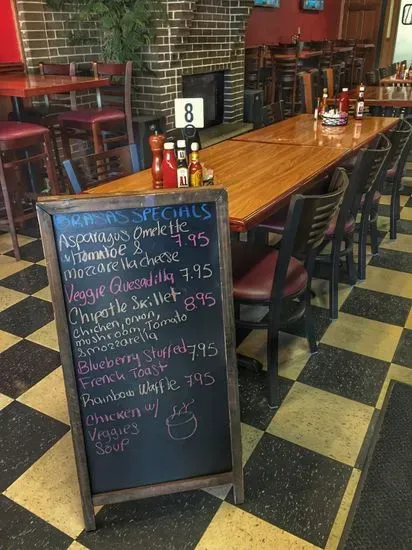 8
SPECIALS
Asparagus Omelette
w/ Tomatoe & 7.95
mozzarella cheese
Veggie Quesadilla 7.95
Chipotle Skillet
Chicken, onion, 8.95
mushroom, Tomato
& mozzarella
Blueberry Stuffed 7.95
French Toast
Rainbow Waffle 7.95
Chicken w/
Veggies
Soup